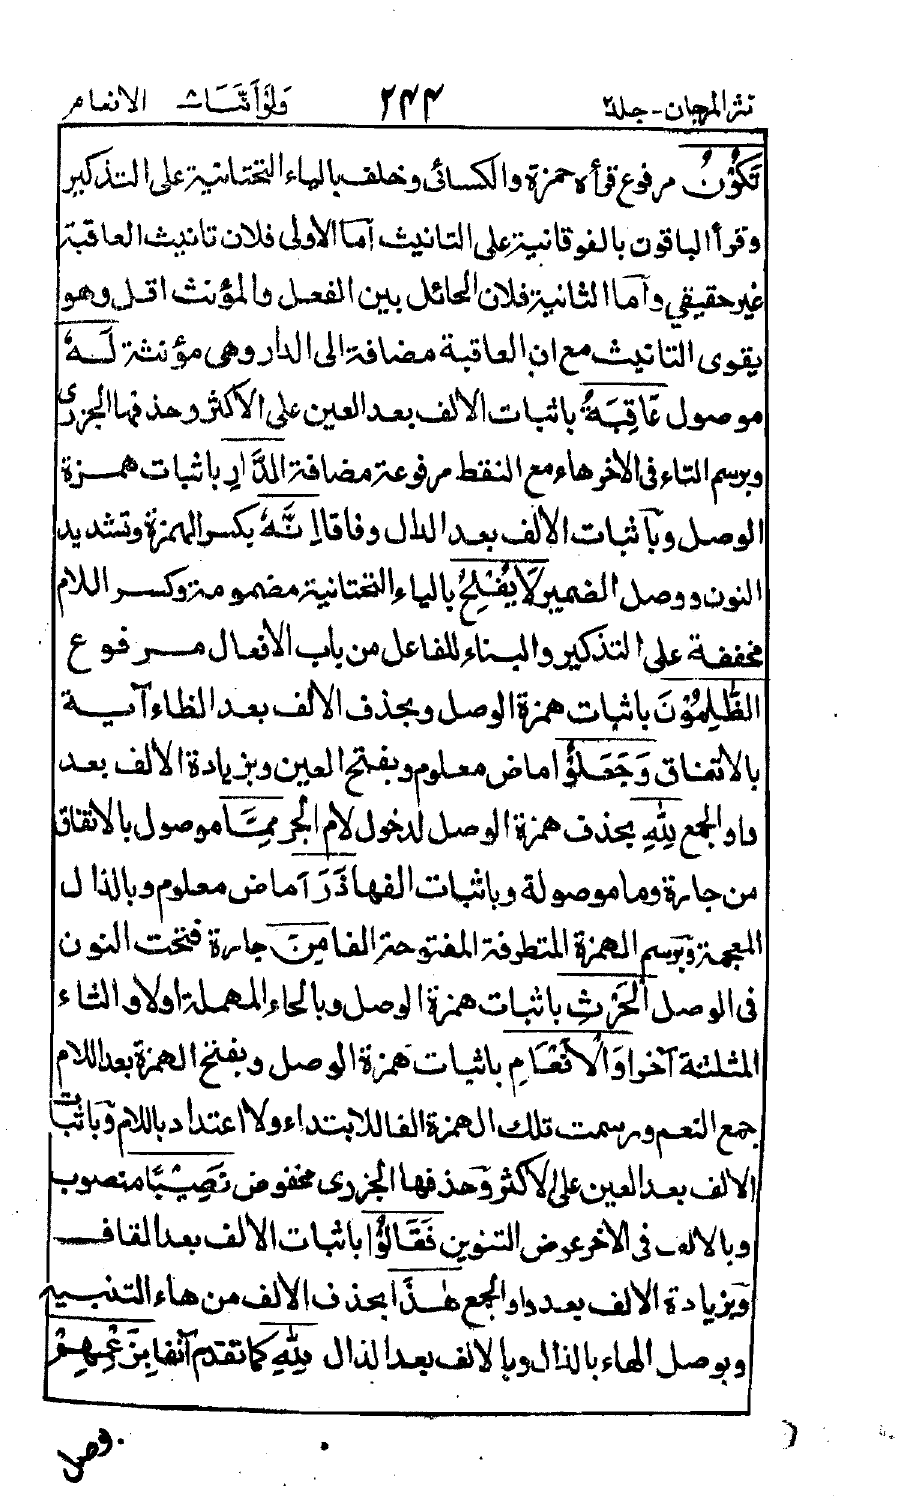 نثر المرجان - جلد٢ ٢٤٤ ولو أننا الانعام
تَكُوْنُ مرفوع قرأه حمزة والكسائى وخلف بالياء التحتانية على التذكير
وقرأ الباقون بالفوقانية على التانيث آما الأولى فلان تانيث العاقبة
غير حقيقي وآما الثانية فلان الحائل بين الفعل والمؤنث اقل وهو
يقوى التانيث مع ان العاقبة مضافة الى الدار وهى مؤنثة لَـهُ
موصول عَاقِبَةُ باثبات الالف بعد العين على الأكثر وحذفها الجزرى
وبرسم التاء فى الآخر هاء مع النقط مرفوعة مضافة الدَّارِ باثبات همزة
الوصل وبآثبات الألف بعد الدال وفاقا اِنَّهُ بكسر الهمزة وتشديد
النون ووصل الضمير لَا يُفْلِحُ بالياء التحتانية مضمومة وكسر اللام
مخففة على التذكير والبناء للفاعل من باب الأفعال مرفوع
الظّٰلِمُوْنَ باثبات همزة الوصل وبحذف الألف بعد الظاء آية
بالاتفاق وَجَعَلُوْا ماض معلوم وبفتح العين وبزيادة الألف بعد
واو الجمع لِلّٰهِ بحذف همزة الوصل لدخول لام الجر مِمَّا موصول بالاتفاق
من جارة وما موصولة وباثبات الفها ذَرَاَ ماض معلوم وبالذال
المعجمة وبرسم الهمزة المتطرفة المفتوحة الفا مِنَ جارة فتحت النون
فى الوصل الْحَرْثِ باثبات همزة الوصل وبالحاء المهملة اولا والثاء
المثلثة آخرا وَالْاَنْعَامِ باثبات همزة الوصل وبفتح الهمزة بعد اللام
جمع النعم ورسمت تلك الهمزة الفا للابتداء ولا اعتداد باللام وبآثبات
الالف بعد العين على الأكثر وحذفها الجزرى مخفوض نَصِيْبًا منصوب
وبالالف فى الآخر عوض التنوين فَقَالُوْا باثبات الألف بعد القاف
وبزيادة الالف بعد واو الجمع هٰذَا بحذف الالف من هاء التنبيه
وبوصل الهاء بالذال وبالالف بعد الذال لِلّٰهِ كما تقدم آنفا بِزَعْمِهِمْ
وصل